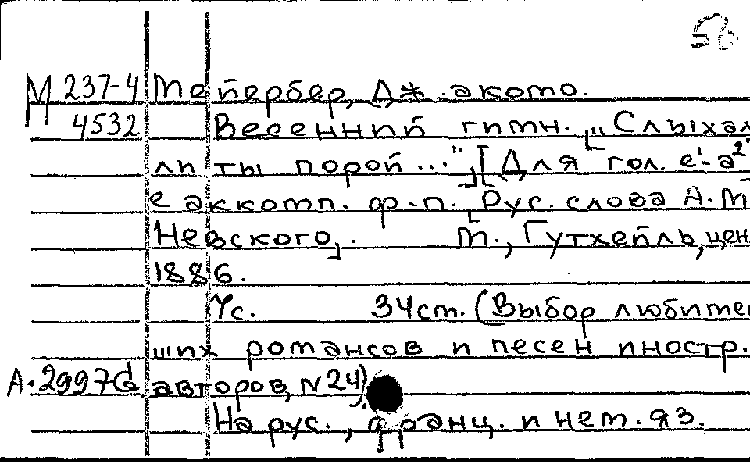 56
М 237-4 Мейербер, Дж.акомо.
4532 Весенний гимн. „Слыхал
ли ты порой..."] [Для гол. e¹-a²
с аккомп. ф.-п. [Рус. слова А.М
Невского]. М., Гутхейль, ценз
1886.
7с. 34см. (Выбор любитей
ших романсов и песен иностр.
А.2997а авторов, N 24).
На рус., франц. и нем. яз.